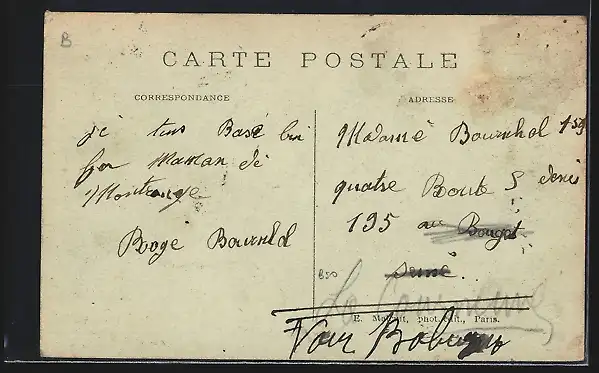 B
CARTE POSTALE
CORRESPONDANCE
ADRESSE
je tus Basé bin
for Maman de
Montrouge
Rogé Bournhol
Madame Bournhol 159
quatre Route S denis
195 au Bouget
Seine
B50
La Courneuve
E. Malcuit, phot. édit., Paris.
Voir Bobigny